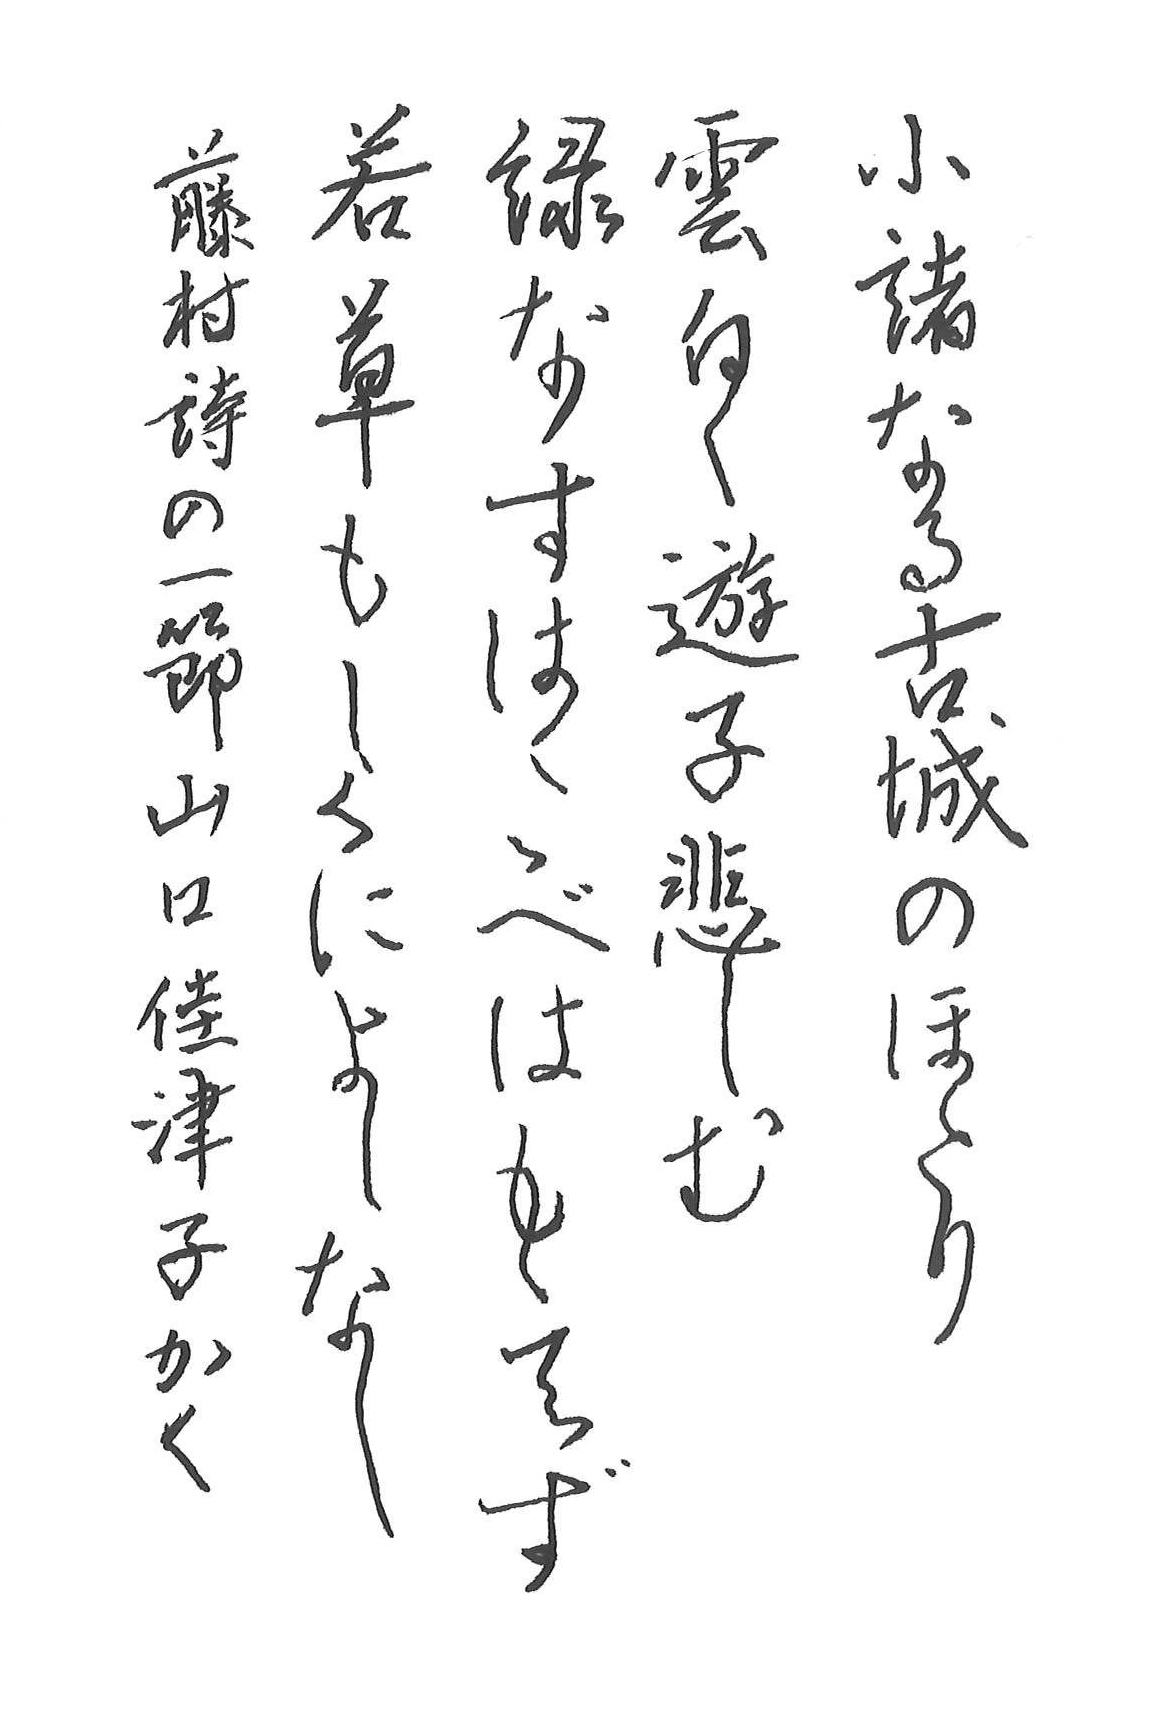 小諸なる古城のほとり
雲白く遊子悲しむ
緑なすはこべはもえず
若草もしくによしなし
藤村詩の一節山口佳津子かく